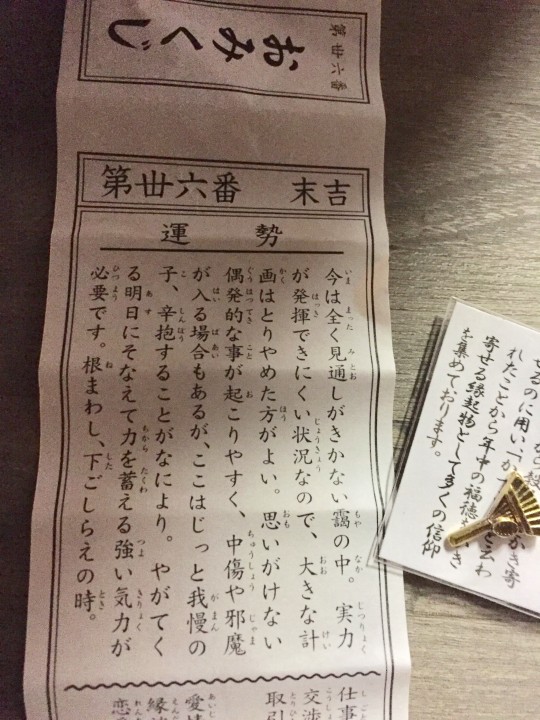 第丗六番
おみくじ
第丗六番 末吉
運 勢
今は全く見通しがきかない靄の中。実力
が発揮できにくい状況なので、大きな計
画はとりやめた方がよい。思いがけない
偶発的な事が起こりやすく、中傷や邪魔
が入る場合もあるが、ここはじっと我慢の
子、辛抱することがなにより。やがてく
る明日にそなえて力を蓄える強い気力が
必要です。根まわし、下ごしらえの時。
仕事
交渉
取引
愛情
せるのに用い「か
かき寄
と云わ
れたことから年中の福徳
寄せる縁起物として多くの信仰
を集めております。